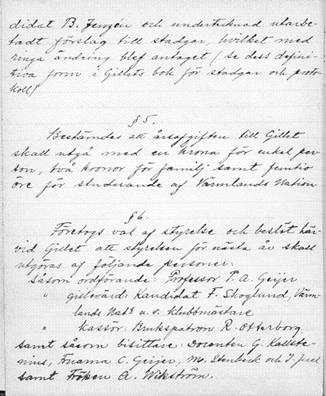 didat B. Jungén och undertecknad utarbe-
tadt förslag till stadgar, hvilket med
ringa ändring blef antaget (se dess defini-
tiva form i Gillets bok för stadgar och proto-
koll)
§ 5.
Bestämdes att årsafgiften till Gillet
skall utgå med en krona för enkel per-
son, två kronor för familj samt femtio
öre för studerande af Värmlands Nation.
§ 6.
Företogs val af styrelse och beslöt här-
vid Gillet att styrelsen för nästa år skall
utgöras af följande personer:
Såsom ordförande: Professor P. A. Geijer
" gillevärd: Kandidat F. Skoglund, Värm-
lands Nat:s u. v. klubbmästare
" kassör: Brukspatron R. Otterborg
samt såsom bisittare: Docenten G. Kallste-
nius, Fruarna C. Geijer, M. Stenbeck och J.
samt Fröken A. Wikström.